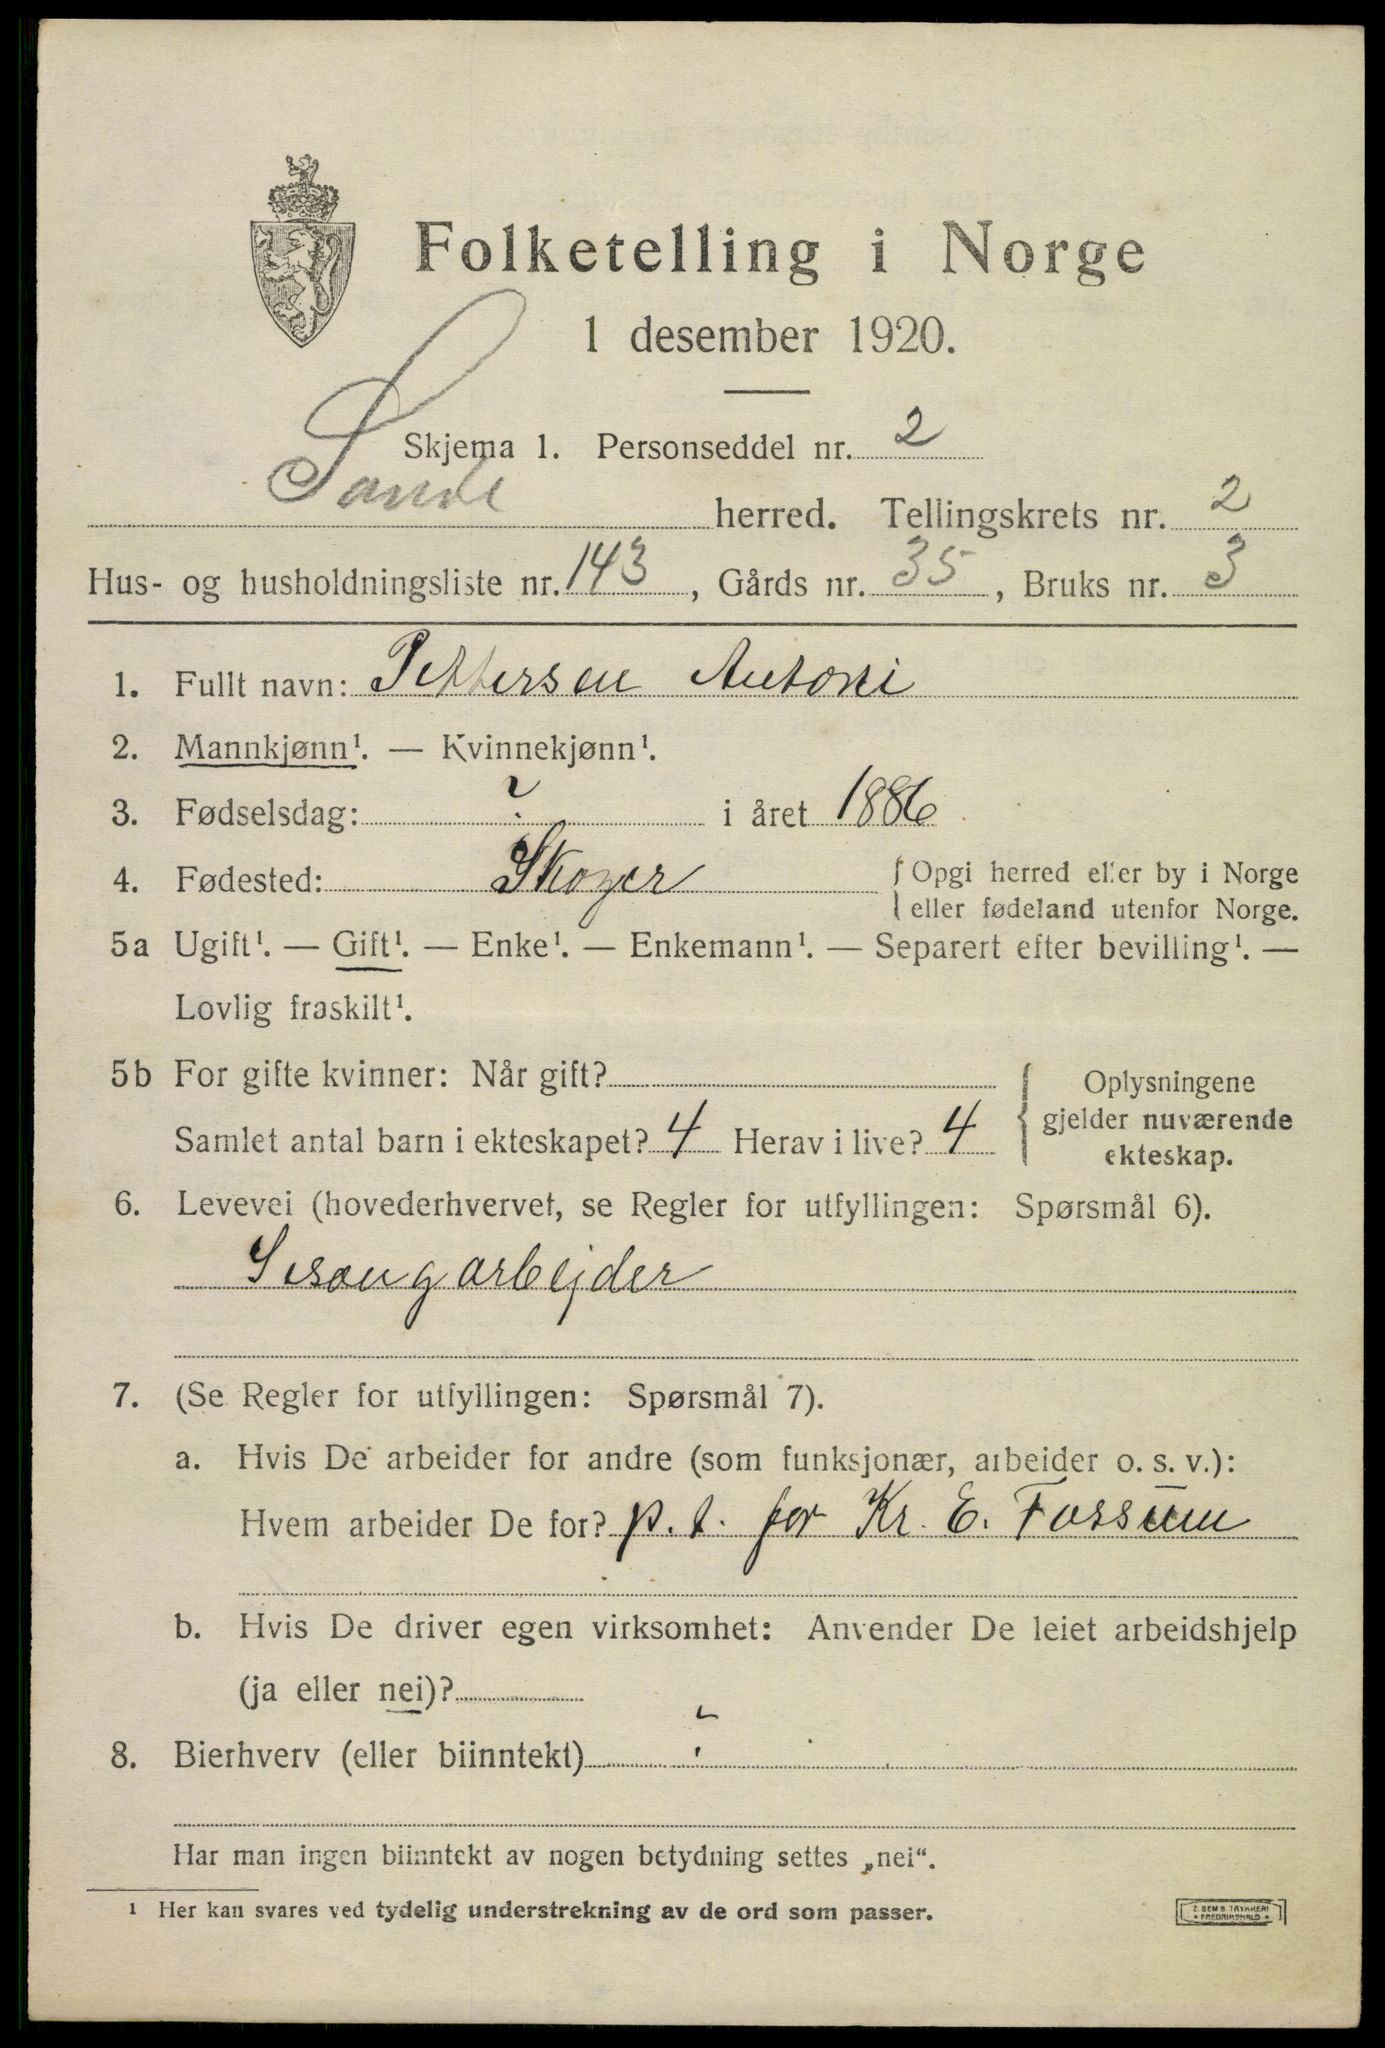 Folketelling i Norge
1 desember 1920.
Skjema 1. Personseddel nr. 2
Sande herred. Tellingskrets nr. 2
Hus- og husholdningsliste nr. 143, Gårds nr. 35, Bruks nr. 3
1. Fullt navn: Pettersen Antoni
2. Mannkjønn¹. — Kvinnekjønn¹.
3. Fødselsdag: ? i året 1886
4. Fødested: Skoger { Opgi herred eller by i Norge
eller fødeland utenfor Norge.
5a Ugift¹. — Gift¹. — Enke¹. — Enkemann¹. — Separert efter bevilling¹. —
Lovlig fraskilt¹.
5b For gifte kvinner: Når gift? { Oplysningene
gjelder nuværende
Samlet antal barn i ekteskapet? 4 Herav i live? 4
ekteskap.
6. Levevei (hovederhvervet, se Regler for utfyllingen: Spørsmål 6).
Sesongarbejder
7. (Se Regler for utfyllingen: Spørsmål 7).
a. Hvis De arbeider for andre (som funksjonær, arbeider o. s. v.):
Hvem arbeider De for? p. t. for Kr. E. Fossum
b. Hvis De driver egen virksomhet: Anvender De leiet arbeidshjelp
(ja eller nei)?
8. Bierhverv (eller biinntekt) ?
Har man ingen biinntekt av nogen betydning settes „nei“.
¹ Her kan svares ved tydelig understrekning av de ord som passer.
E. SEM'S TRYKKERI
* FREDRIKSHALD *